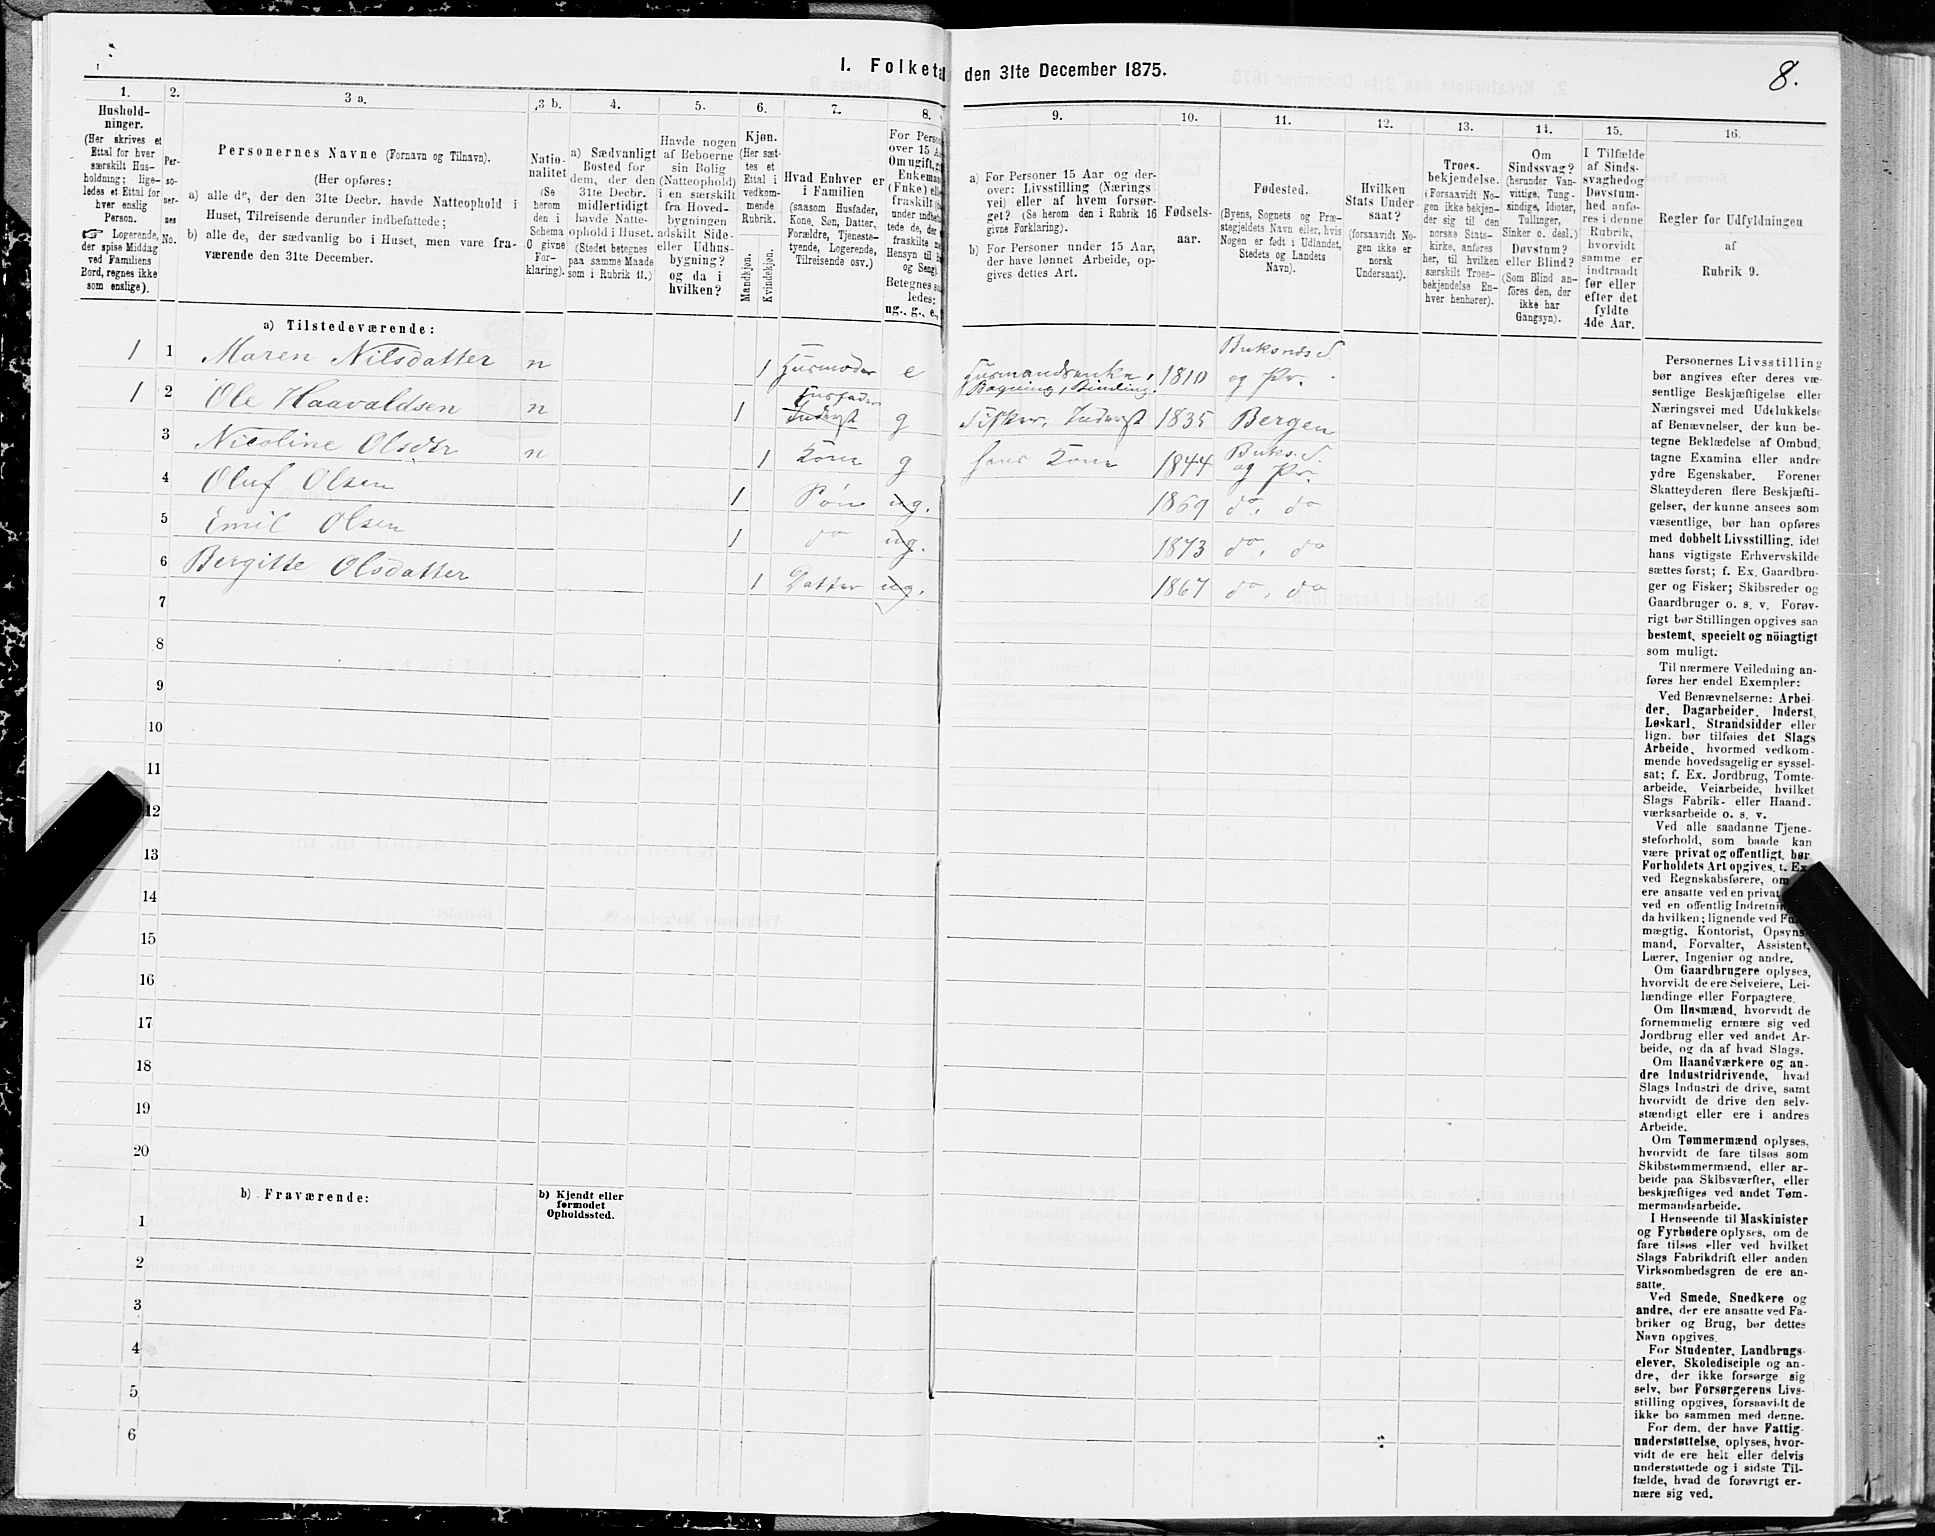 I. Folketal den 31te December 1875.
8.
1.
Hushold-
ninger.
(Her skrives et
Ettal for hver
særskilt Hus-
holdning; lige-
ledes et Ettal for
hver enslig
Person.
☞ Logerende,
der spise Middag
ved Familiens
Bord, regnes ikke
som enslige).
2.
Per-
so-
ner-
nes
No.
3 a.
Personernes Navne (Fornavn og Tilnavn).
(Her opføres:
a) alle de, der den 31te Decbr. havde Natteophold i
Huset, Tilreisende derunder indbefattede;
b) alle de, der sædvanlig bo i Huset, men vare fra-
værende den 31te December.
3 b.
Natio-
nalitet
(Se
herom
den i
Schema
O givne
For-
klaring).
4.
a) Sædvanligt
Bosted for
dem, der den
31te Decbr.
midlertidigt
havde Natte-
ophold i Huset.
(Stedet betegnes
paa samme Maade
som i Rubrik 11.)
5.
Havde nogen
af Beboerne
sin Bolig
(Natteophold)
i en særskilt
fra Hoved-
bygningen
adskilt Side-
eller Udhus-
bygning?
og da i
hvilken?
6.
Kjøn.
(Her sæt-
tes et
Ettal i
vedkom-
mende
Rubrik.
Mandkjøn.
Kvindekjøn.
7.
Hvad Enhver er
i Familien
(saasom Husfader,
Kone, Søn, Datter,
Forældre, Tjeneste-
tyende, Logerende,
Tilreisende osv.)
8.
For Perso
over 15 A
Om ugift, g
Enkeman
(Enke) ell
fraskilt
under indbe
tede de,
fraskilte
Hensyn til
og Seng)
Betegnes
ledes:
ug., g., e.,
9.
a) For Personer 15 Aar og der-
over: Livsstilling (Nærings-
vei) eller af hvem forsør-
get? (Se herom den i Rubrik 16
givne Forklaring).
b) For Personer under 15 Aar,
der have lønnet Arbeide, op-
gives dettes Art.
10.
Fødsels-
aar.
11.
Fødested.
(Byens, Sognets og Præ-
stegjeldets Navn eller, hvis
Nogen er født i Udlandet,
Stedets og Landets
Navn).
12.
Hvilken
Stats Under-
saat?
(forsaavidt No-
gen ikke er
norsk
Undersaat).
13.
Troes-
bekjendelse.
(Forsaavidt No-
gen ikke bekjen-
der sig til den
norske Stats-
kirke, anføres
her, til hvilken
særskilt Troes-
bekjendelse En-
hver henhører).
14.
Om
Sindssvag?
(herunder Van-
vittige, Tung-
sindige, Idioter,
Tullinger,
Sinker o. desl.)
Døvstum?
eller Blind?
(Som Blind an-
føres den, der
ikke har
Gangsyn).
15.
I Tilfælde
af Sinds-
svaghed og
Døvstum-
hed anfø-
res i denne
Rubrik,
hvorvidt
samme er
indtraadt
før eller
efter det
fyldte
4de Aar.
16.
Regler for Udfyldningen
af
Rubrik 9.
a) Tilstedeværende:
1 1 Maren Nilsdatter n 1 Husmoder e Husmandsenke, Bagning, Binding. 1810 Buksnæs S. og Pr.
1 2 Ole Haavaldsen n 1 Inderst Husfader g Fisker, Inderst 1835 Bergen
3 Nicoline Olsdtr n 1 Kone g hans Kone 1844 Buks. S. og Pr.
4 Oluf Olsen 1 Søn ug. 1869 do, do
5 Emil Olsen 1 do ug. 1873 do, do
6 Bergitte Olsdatter 1 Datter ug. 1867 do, do
7
8
9
10
11
12
13
14
15
16
17
18
19
20
b) Fraværende:
b) Kjendt eller
formodet
Opholdssted.
1
2
3
4
5
6
Personernes Livsstilling
bør angives efter deres væ-
sentlige Beskjæftigelse eller
Næringsvei med Udelukkelse
af Benævnelser, der kun be-
tegne Beklædelse af Ombud,
tagne Examina eller andre
ydre Egenskaber. Forener
Skatteyderen flere Beskjæfti-
gelser, der kunne ansees som
væsentlige, bør han opføres
med dobbelt Livsstilling, idet
hans vigtigste Erhvervskilde
sættes først; f. Ex. Gaardbru-
ger og Fisker; Skibsreder og
Gaardbruger o. s. v. Forøv-
rigt bør Stillingen opgives saa
bestemt, specielt og nöiagtigt
som muligt.
Til nærmere Veiledning an-
føres her endel Exempler:
Ved Benævnelserne: Arbei-
der, Dagarbeider, Inderst,
Løskarl, Strandsidder eller
lign. bør tilføies det Slags
Arbeide, hvormed vedkom-
mende hovedsagelig er syssel-
sat; f. Ex. Jordbrug, Tomte-
arbeide, Veiarbeide, hvilket
Slags Fabrik- eller Haand-
værksarbeide o. s. v.
Ved alle saadanne Tjene-
steforhold, som baade kan
være privat og offentligt, bør
Forholdets Art opgives, t. Ex.
ved Regnskabsførere, om
ere ansatte ved en privat
ved en offentlig Indretning
da hvilken; lignende ved Ful
mægtig, Kontorist, Opsyns-
mand, Forvalter, Assistent,
Lærer, Ingeniør og andre.
Om Gaardbrugere oplyses,
hvorvidt de ere Selveiere, Lei-
lændinge eller Forpagtere.
Om Husmænd, hvorvidt de
fornemmelig ernære sig ved
Jordbrug eller ved andet Ar-
beide, og da af hvad Slags.
Om Haandværkere og an-
dre Industridrivende, hvad
Slags Industri de drive, samt
hvorvidt de drive den selv-
stændigt eller ere i andres
Arbeide.
Om Tømmermænd oplyses,
hvorvidt de fare tilsøs som
Skibstømmermænd, eller ar-
beide paa Skibsværfter, eller
beskjæftiges ved andet Tøm-
mermandsarbeide.
I Henseende til Maskinister
og Fyrbødere oplyses, om de
fare tilsøs eller ved hvilket
Slags Fabrikdrift eller anden
Virksombedsgren de ere an-
satte.
Ved Smede, Snedkere og
andre, der ere ansatte ved Fa-
briker og Brug, bør dettes
Navn opgives.
For Studenter, Landbrugs-
elever, Skoledisciple og an-
dre, der ikke forsørge sig
selv, bør Forsørgerens Livs-
stilling opgives, forsaavidt de
ikke bo sammen med denne.
For dem, der have Fattig-
understøttelse, oplyses, hvor-
vidt de ere helt eller delvis
understøttede og i sidste Til-
fælde, hvad de forøvrigt er-
nære sig ved.